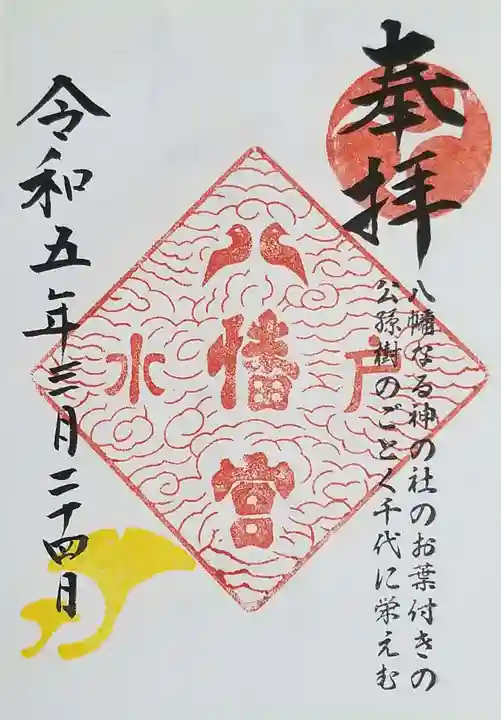 奉拝
八幡なる神の社のお葉付きの
公孫樹のごとく千代に栄えむ
水戸
八幡宮
令和五年三月二十四日